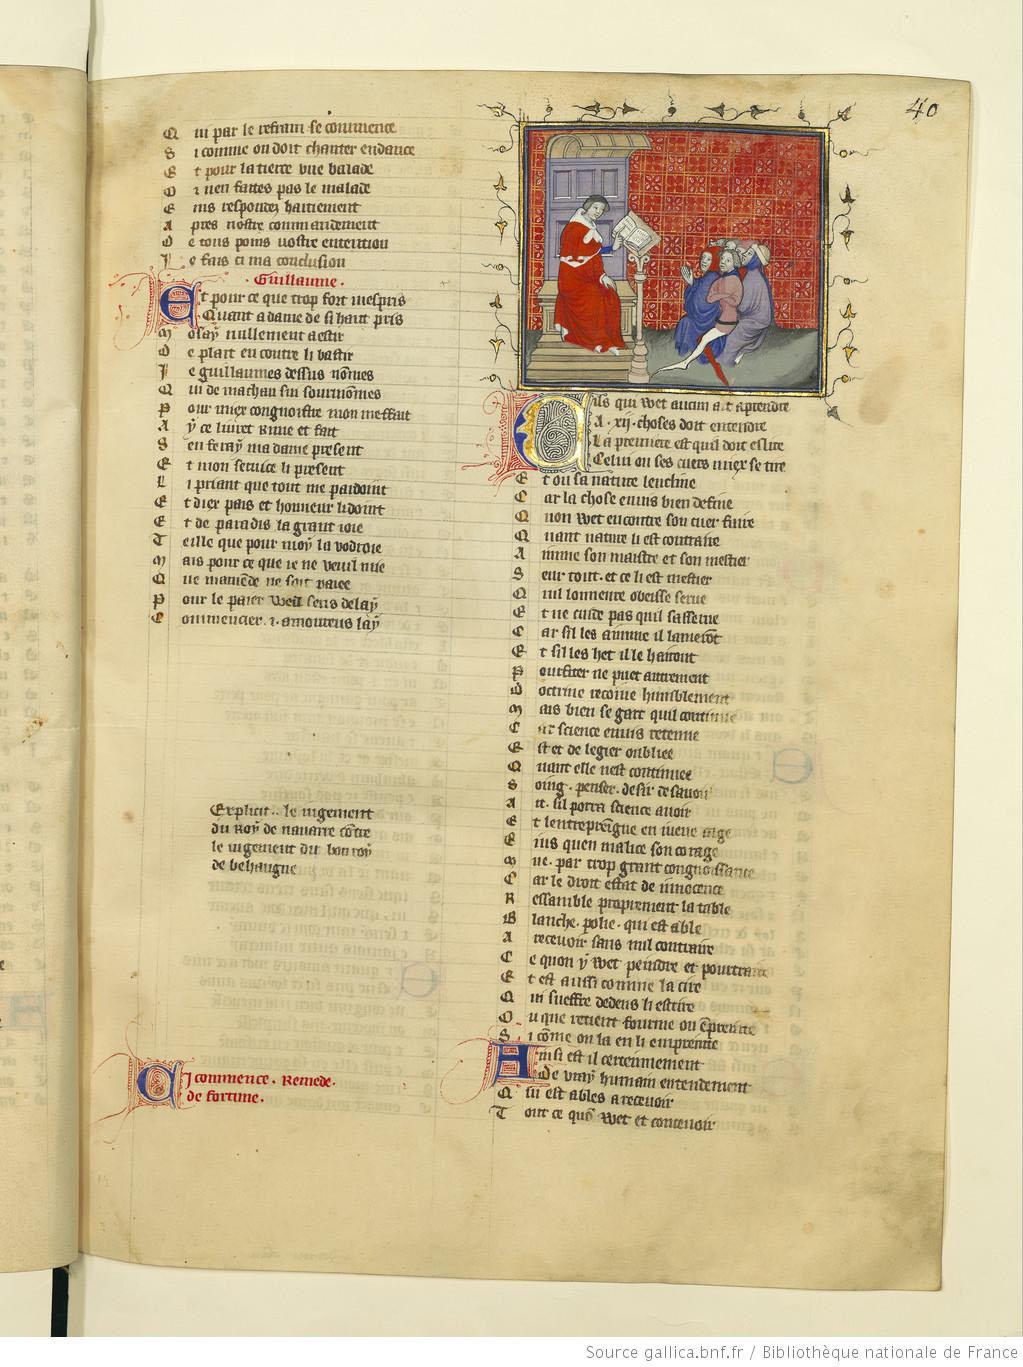 40
Qui par le refrain se commence
Si comme on doit chanter en dance
Et pour la tierce une balade
Or nen faites pas le malade
Eins respondez haitiement
Apres nostre commandement
De tous poins vostre entention
Je fais ci ma conclusion
Guillaume.
Et pour ce que trop fort mespris
Quant a dame de si haut pris
Mosay nullement aestir
De plait en contre li bastir
Je guillaumes dessus nõmes
Qui de machau sui sournõmes
Pour miex congnoistre mon meffait
Ay ce livret rime et fait
Sen feray ma dame present
Et mon service li present
Li priant que tout me pardoint
Et dier pais et honneur li doint
Et de paradis la grant ioie
Teille que pour moy la vodroie
Mais pour ce que ie ne veuil mie
Que mamende ne soit paiee
Pour le paier weil sens delay
Commencier .i. amoureus lay
Explicit .. le iugement
du Roy de navarre cõtre
le iugement du bon roy
de behaugne
Ci commence. Remede.
de fortune.
Cils qui wet aucun art aprendre
A .xij. choses doit entendre
La premiere est quil doit eslire
Celui ou ses cuers miex se tire
Et ou sa nature lencline
Car la chose envis bien define
Quon wet encontre son cuer faire
Quant nature li est contraire
Aimme son maistre et son mestier
Seur tout. et ce li est mestier
Quil lonneure obeisse serve
Et ne cuide pas quil sasserve
Car sil les aimme il lamerõt
Et sil les het il le harront
Pourfiter ne puet autrement
Doctrine recoive humblement
Mais bien se gart quil continue
Car science envis retenue
Est et de legier oubliee
Quant elle nest continuee
Soing. penser. desir de savoir
Ait. sil porra science avoir
Et lentrepreigne en iuene aige
Eins quen malice son corage
Mue. par trop grant congnoissance
Car le droit estat de innocence
Ressamble proprement la table
Blanche. polie. qui est able
A recevoir sans nul contraire
Ce quon y wet peindre et pourtraire
Et est aussi comme la cire
Qui sueffre dedens li escrire
Ou que retient fourme ou ẽprainte
Si cõme on la en li empreinte
Ainsi est il certeinnement
De vray humain entendement
Qui est ables a recevoir
Tout ce quõ wet et concevoir
Source gallica.bnf.fr / Bibliothèque nationale de France